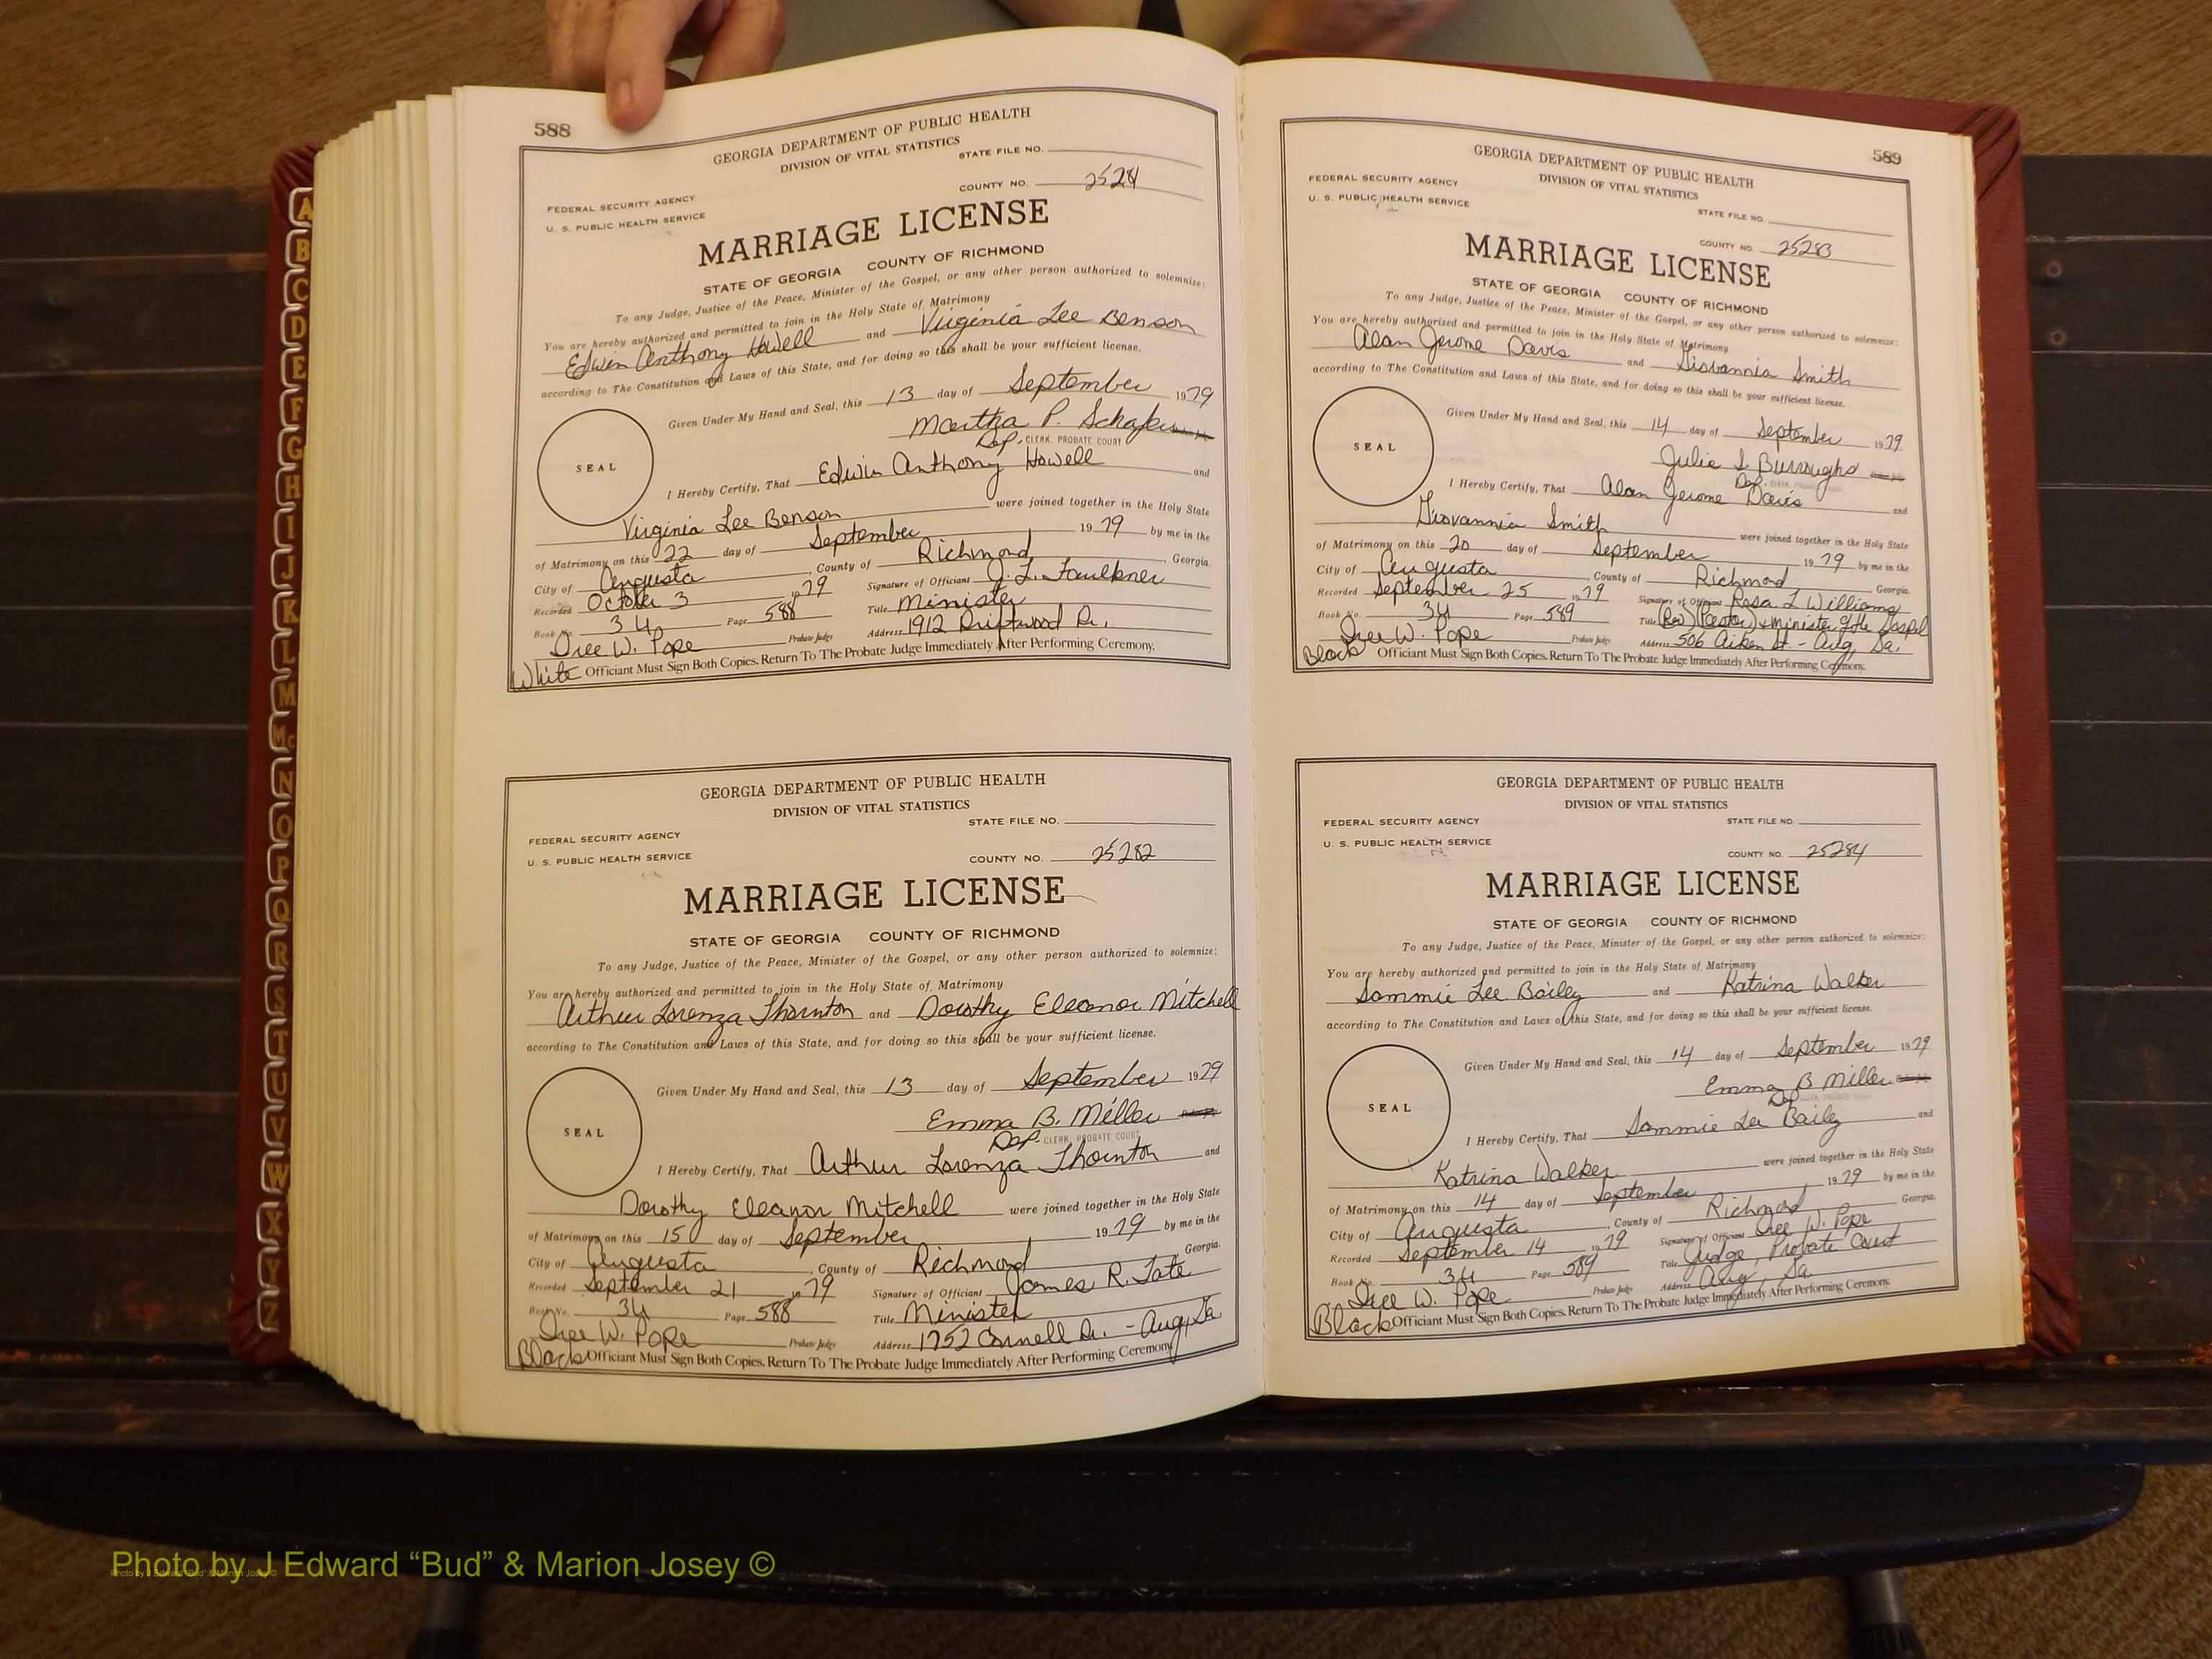 588
GEORGIA DEPARTMENT OF PUBLIC HEALTH
DIVISION OF VITAL STATISTICS
STATE FILE NO.
FEDERAL SECURITY AGENCY
COUNTY NO.
U. S. PUBLIC HEALTH SERVICE
MARRIAGE LICENSE
STATE OF GEORGIA COUNTY OF RICHMOND
To any Judge, Justice of the Peace, Minister of the Gospel, or any other person authorized to solemnize:
You are hereby authorized and permitted to join in the Holy State of Matrimony
Edwin Anthony Howell and Virginia Lee Benson
according to The Constitution and Laws of this State, and for doing so this shall be your sufficient license.
Given Under My Hand and Seal, this 13 day of September 1979
Martha P. Schafer
Dep. CLERK, PROBATE COURT
SEAL
I Hereby Certify, That Edwin Anthony Howell and
Virginia Lee Benson were joined together in the Holy State
of Matrimony on this 22 day of September 1979 by me in the
City of Augusta, County of Richmond, Georgia.
Recorded October 3 1979 Signature of Official J. L. Faulkner
Book No. 34 Page 588 Title Minister
Dree W. Pope Probate Judge Address 1912 Driftwood Dr.
White Officiant Must Sign Both Copies. Return To The Probate Judge Immediately After Performing Ceremony.
GEORGIA DEPARTMENT OF PUBLIC HEALTH
DIVISION OF VITAL STATISTICS
STATE FILE NO.
FEDERAL SECURITY AGENCY
U. S. PUBLIC HEALTH SERVICE COUNTY NO. 25282
MARRIAGE LICENSE
STATE OF GEORGIA COUNTY OF RICHMOND
To any Judge, Justice of the Peace, Minister of the Gospel, or any other person authorized to solemnize:
You are hereby authorized and permitted to join in the Holy State of Matrimony
Arthur Lorenza Thornton and Dorothy Eleanor Mitchell
according to The Constitution and Laws of this State, and for doing so this shall be your sufficient license.
Given Under My Hand and Seal, this 13 day of September 1979
Emma B. Miller
Dep. CLERK, PROBATE COURT
SEAL
I Hereby Certify, That Arthur Lorenza Thornton and
Dorothy Eleanor Mitchell were joined together in the Holy State
of Matrimony on this 15 day of September 1979 by me in the
City of Augusta, County of Richmond Georgia.
Recorded September 21 1979 Signature of Official James R. Tate
Book No. 34 Page 588 Title Minister
Dree W. Pope Probate Judge Address 1752 Cornell Dr. - Aug, Ga
Black Officiant Must Sign Both Copies. Return To The Probate Judge Immediately After Performing Ceremony.
589
GEORGIA DEPARTMENT OF PUBLIC HEALTH
DIVISION OF VITAL STATISTICS
FEDERAL SECURITY AGENCY
U. S. PUBLIC HEALTH SERVICE
STATE FILE NO.
COUNTY NO. 25283
MARRIAGE LICENSE
STATE OF GEORGIA COUNTY OF RICHMOND
To any Judge, Justice of the Peace, Minister of the Gospel, or any other person authorized to solemnize:
You are hereby authorized and permitted to join in the Holy State of Matrimony
Alan Jerome Davis and Giovannia Smith
according to The Constitution and Laws of this State, and for doing so this shall be your sufficient license.
Given Under My Hand and Seal, this 14 day of September 1979
Julie S. Burroughs
Dep.
SEAL
I Hereby Certify, That Alan Jerome Davis and
Giovannia Smith were joined together in the Holy State
of Matrimony on this 20 day of September 1979 by me in the
City of Augusta, County of Richmond Georgia.
Recorded September 25 1979 Signature of Official Rosa L Williams
Book No. 34 Page 589 Title (Rev) (Pastor) + Minister of the Gospel
Dree W. Pope Probate Judge Address 506 Aiken St. - Aug, Ga.
Black Officiant Must Sign Both Copies. Return To The Probate Judge Immediately After Performing Ceremony.
GEORGIA DEPARTMENT OF PUBLIC HEALTH
DIVISION OF VITAL STATISTICS
FEDERAL SECURITY AGENCY STATE FILE NO.
U. S. PUBLIC HEALTH SERVICE
COUNTY NO. 25284
MARRIAGE LICENSE
STATE OF GEORGIA COUNTY OF RICHMOND
To any Judge, Justice of the Peace, Minister of the Gospel, or any other person authorized to solemnize:
You are hereby authorized and permitted to join in the Holy State of Matrimony
Sammie Lee Bailey and Katrina Walker
according to The Constitution and Laws of this State, and for doing so this shall be your sufficient license.
Given Under My Hand and Seal, this 14 day of September 1979
Emma B Miller
Dep
SEAL
I Hereby Certify, That Sammie Lee Baily and
Katrina Walker were joined together in the Holy State
of Matrimony on this 14 day of September 1979 by me in the
City of Augusta, County of Richmond Georgia.
Recorded September 14 1979 Signature of Official Dree W. Pope
Book No. 34 Page 589 Title Judge, Probate Court
Dree W. Pope Probate Judge Address Aug, Ga
Black Officiant Must Sign Both Copies. Return To The Probate Judge Immediately After Performing Ceremony.
A
B
C
D
E
F
G
H
I
J
K
L
M
Mc
N
O
P
Q
R
S
T
U
V
W
X
Y
Z
Photo by J Edward “Bud” & Marion Josey ©